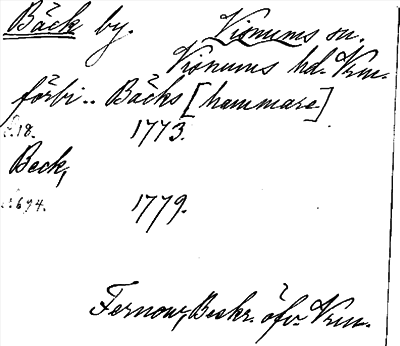 Bäck by. Visnums sn.
Visnums hd. Vrm.
förbi.. Bäcks [hammare]
s. 18. 1773.
Beck,
s. 694. 1779.
Fernow, Beskr. öfv. Vrm.